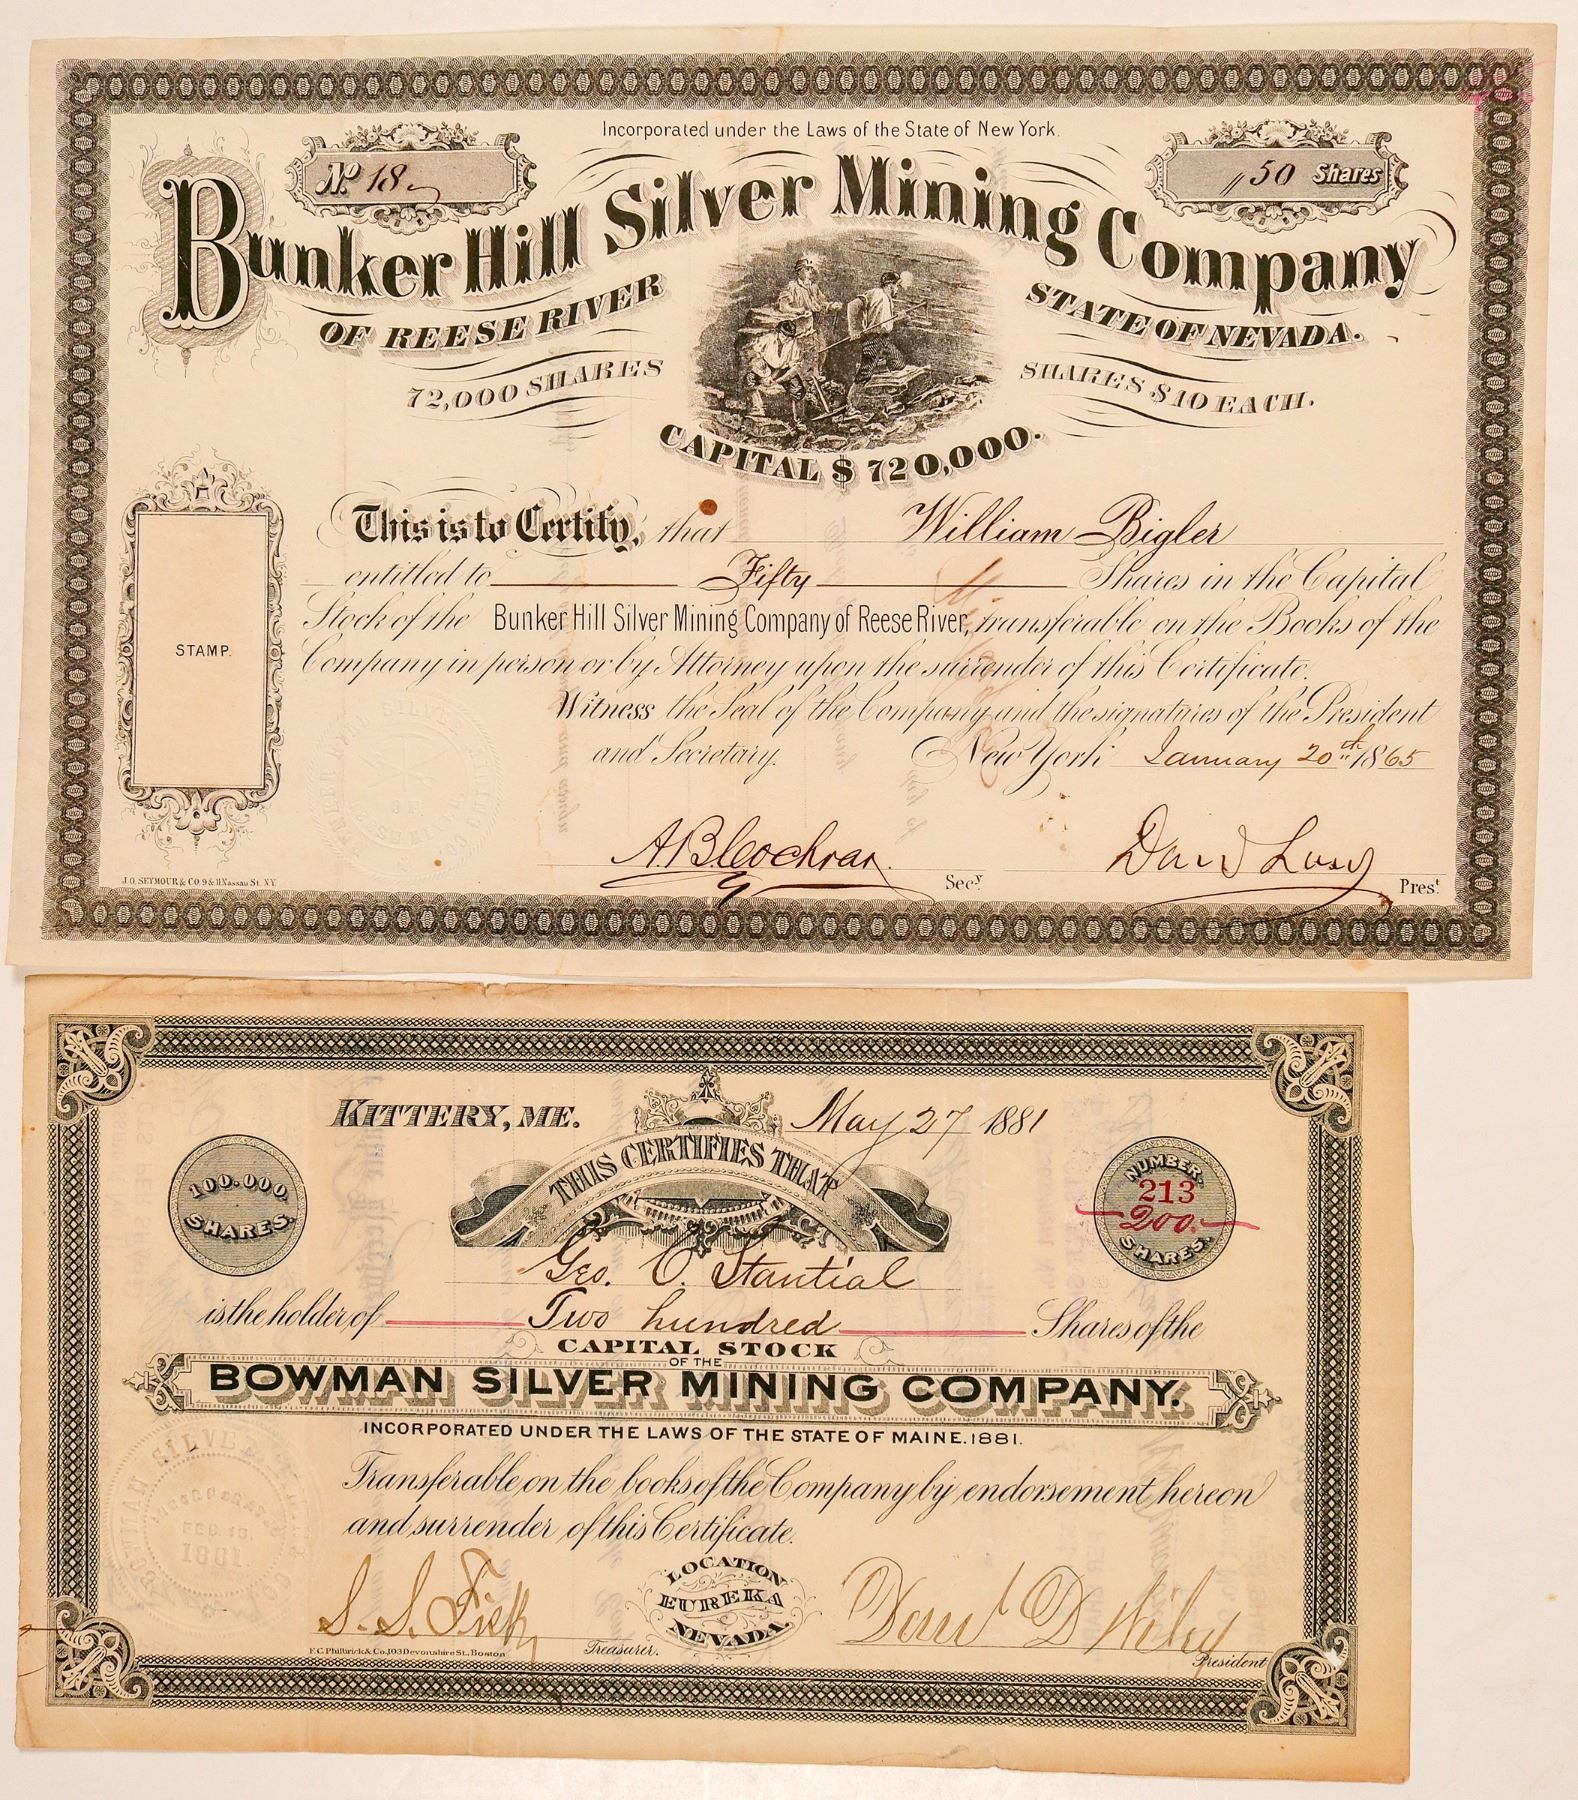 Incorporated under the Laws of the State of New York.
No. 18
50 Shares
Bunker Hill Silver Mining Company
OF REESE RIVER STATE OF NEVADA.
72,000 SHARES SHARES $10 EACH.
CAPITAL $720,000.
This is to Certify, that William Bigler
entitled to Fifty Shares in the Capital
Stock of the Bunker Hill Silver Mining Company of Reese River, transferable on the Books of the
Company in person or by Attorney upon the surrender of this Certificate.
Witness the Seal of the Company and the signatures of the President
and Secretary. New York January 20th 1865
STAMP.
A B Cochran Secy.
David Pres.t
J.O. SEYMOUR & CO. 9 & 11 Nassau St. N.Y.
KITTERY, ME. May 27 1881
THIS CERTIFIES THAT
100.000. SHARES.
NUMBER 213
200. SHARES.
Geo. C. Stantial
is the holder of Two hundred Shares of the
CAPITAL STOCK
OF THE
BOWMAN SILVER MINING COMPANY.
INCORPORATED UNDER THE LAWS OF THE STATE OF MAINE. 1881.
Transferable on the books of the Company by endorsement hereon
and surrender of this Certificate.
BOWMAN SILVER
FEB. 1881.
S. S. Fisk Treasurer.
LOCATION
EUREKA
NEVADA.
D President
F.C. Philbrick & Co. 103 Devonshire St., Boston